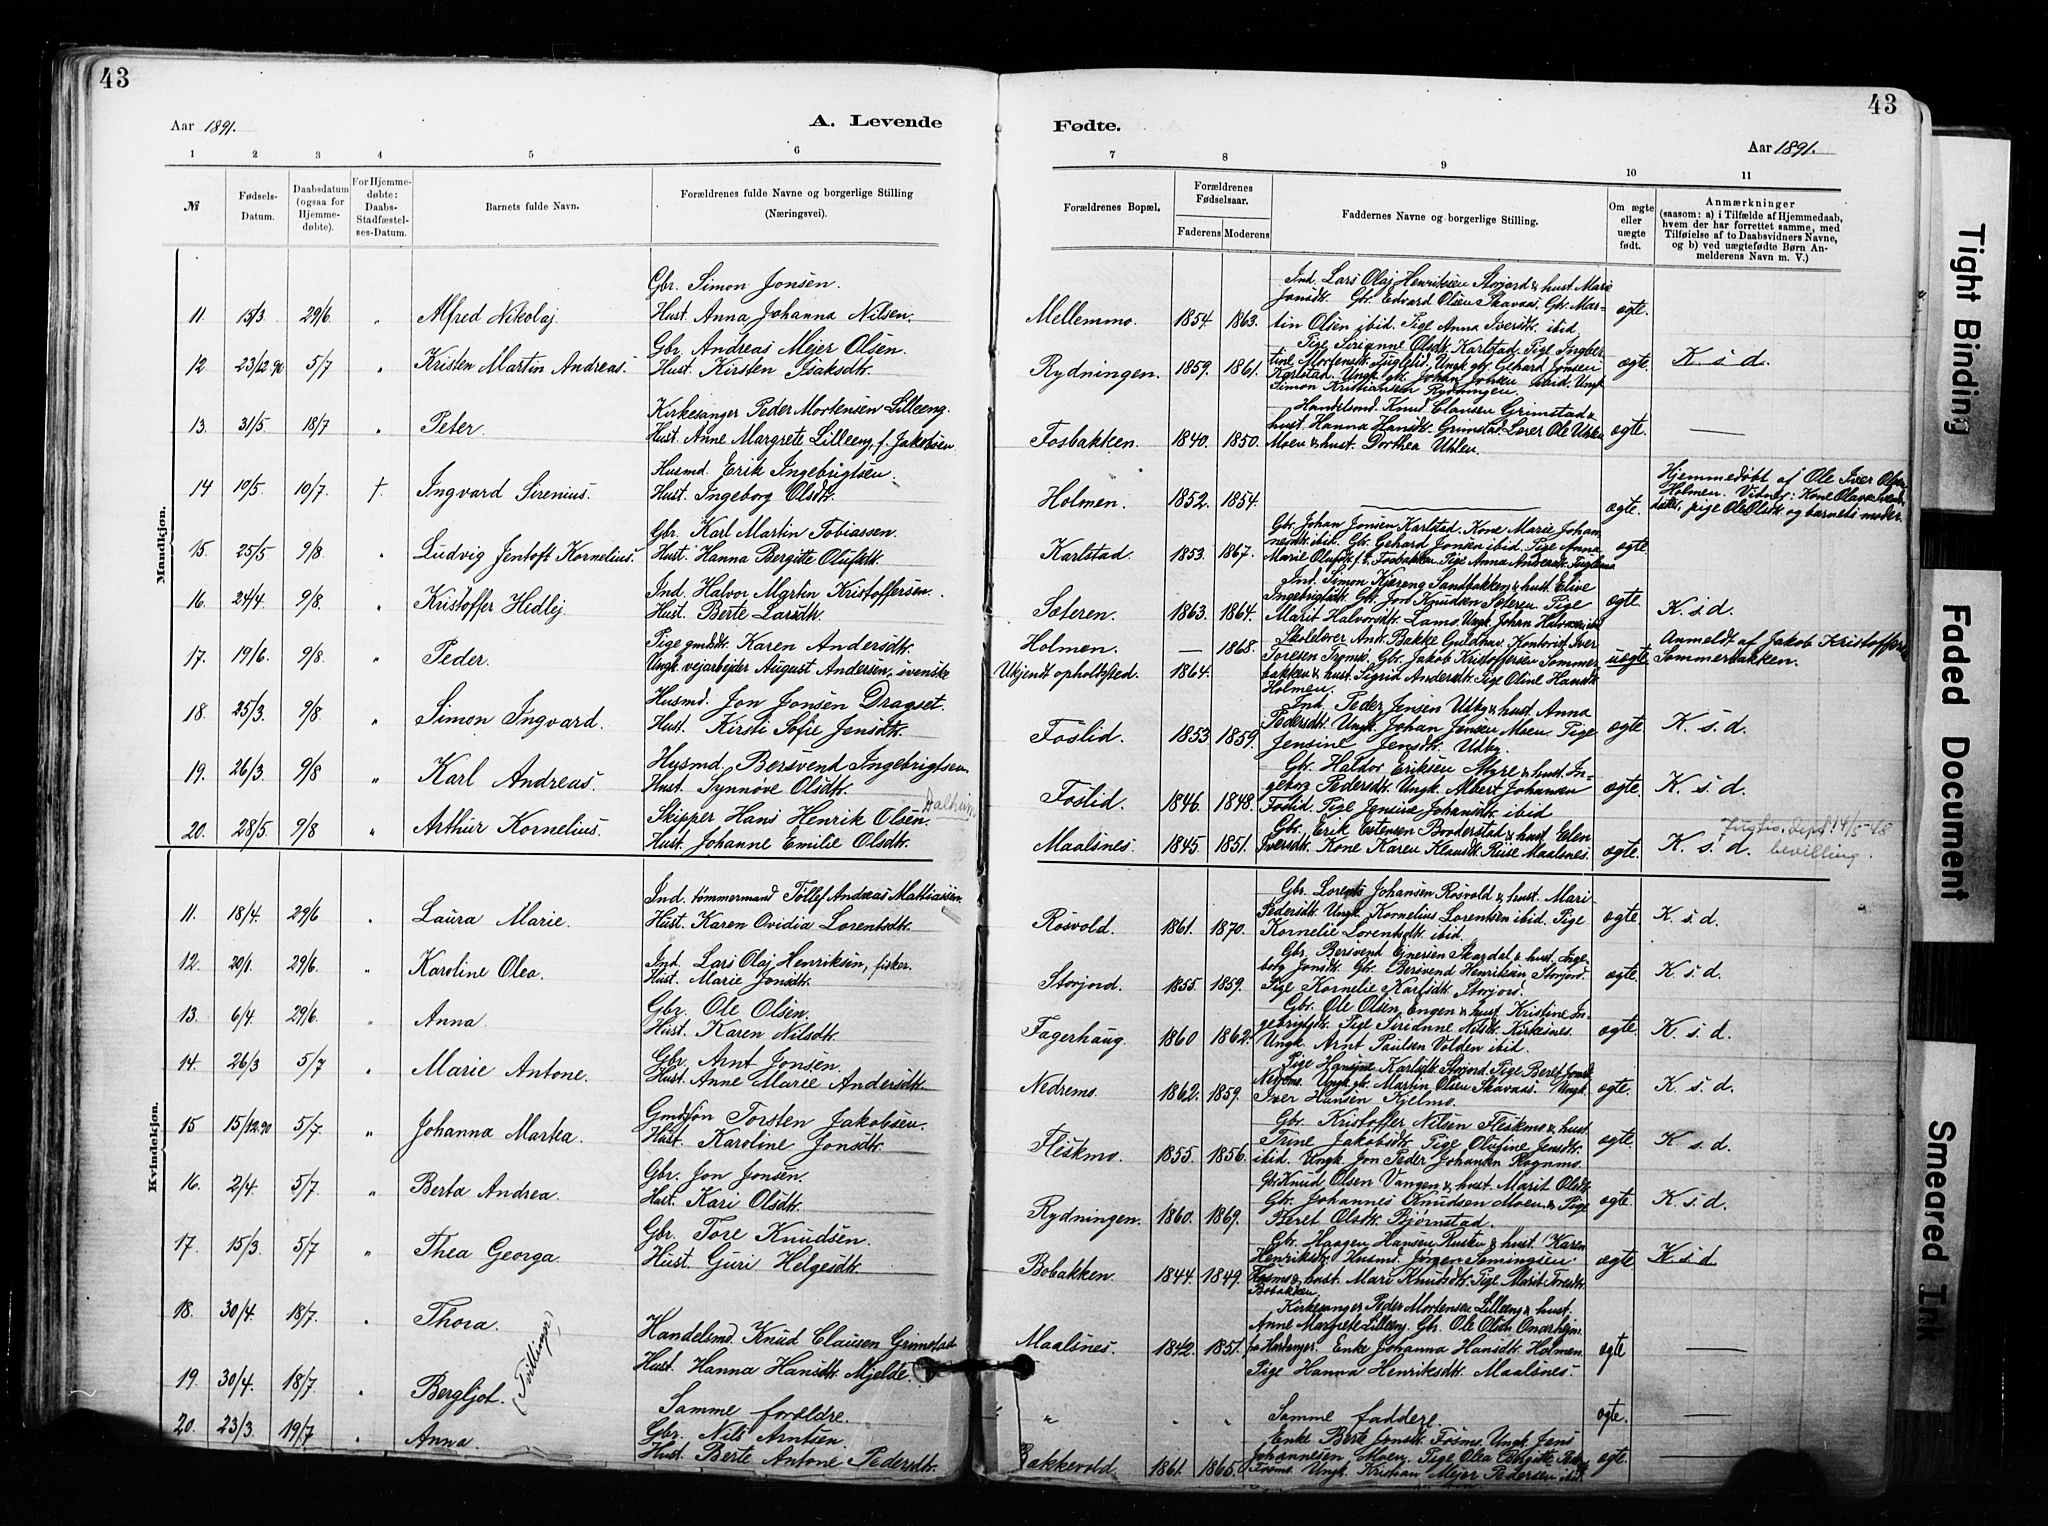 43
43
Aar 1891.
A. Levende
Fødte.
Aar 1891.
1 2 3 4 5 6
7 8 9 10 11
№ Fødsels-Datum. Daabsdatum (ogsaa for Hjemmedøbte). For Hjemmedøbte: Daabs-Stadfæstelses-Datum. Barnets fulde Navn. Forældrenes fulde Navne og borgerlige Stilling (Næringsvei).
Forældrenes Bopæl. Forældrenes Fødselsaar. Faderens Moderens Faddernes Navne og borgerlige Stilling. Om ægte eller uægte født. Anmærkninger (saasom: a) i Tilfælde af Hjemmedaab, hvem der har forrettet samme, med Tilføielse af to Daabsvidners Navne, og b) ved uægtefødte Børn Anmelderens Navn m. V.)
Mandkjøn.
11. 15/3 29/6. " Alfred Nikolaj. Gbr. Simon Jonsen.
Hust. Anna Johanna Nilsen.
Mellemmo. 1854. 1863. Ind. Lars Olaj Henriksen Storjord & hust. Mari
Jonsdtr. Gbr. Edvard Olsen Skavaas, Gbr. Mar-
tin Olsen ibid. Pige Anna Iversdtr. ibid. ægte.
12. 23/12.90 5/7 " Kristen Martin Andreas. Gbr. Andreas Mejer Olsen.
Hust. Kirsten Isaksdtr.
Rydningen. 1859. 1861. Pige Sirianne Olsdtr. Karlstad. Pige Ingber-
tine Mortensdtr. Fuglelid. Ungk. gbr. Gehard Jonsen
Karlstad. Ungk. gbr. Johan Jonsen ibid. Ungk.
Simon Kristiansen Rydningen. ægte. K. s. d.
13. 31/5. 18/7 " Peter. Kirkesanger Peder Mortensen Lilleeng.
Hust. Anne Margrete Lilleeng, f. Jakobsen
Fosbakken. 1840. 1850. Handelsmd. Knud Clausen Grimstad &
hust. Hanna Hansdtr. Grimstad. Lærer Ole Uhlen
Moen & hust. Dorthea Uhlen. ægte. —
14 10/5. 10/7. †. Ingvard Sirenius. Husmd. Erik Ingebrigtsen.
Hust. Ingeborg Olsdtr.
Holmen. 1852. 1854. — ægte. Hjemmedøbt af Ole Iver Olsen
Holmen. Vidner: Kone Olava
pige Ole Olsdtr. og barnets moder.
15. 25/5 9/8. " Ludvig Jentoft Kornelius. Gbr. Karl Martin Tobiassen.
Hust. Hanna Bergitte Olufsdtr.
Karlstad. 1853. 1867. Gbr. Johan Jonsen Karlstad. Kone Marie Johan
nesdtr. ibid. Gbr. Gehard Jonsen ibid. Pige Anna
Marie Olufsdtr. Fosbakken. Pige Anna Andersdtr. ægte
16. 24/4. 9/8. " Kristoffer Hedlej. Ind. Halvor Martin Kristoffersen.
Hust. Berte Larsdtr.
Sæteren. 1863. 1864. Ind. Simon Kjæreng Sandbakken & hust. Elive
Ingebrigtsdtr. Gbr. Jon Knudsen Sæteren. Pige
Marit Halvorsdtr. Lams. Ungk. Johan Halvorsen ibid ægte K. s. d.
17. 19/6. 9/8. " Peder. Pige gmdsdtr. Karen Andersdtr.
Ungk. vejarbejder August Andersen, svenske
Holmen. — 1868.
Ukjendt opholdsted. 1864. Skolelærer And. Bakke Guldhav. Kontorist Iver
Toresen Tromsø. Gbr. Jakob Kristoffersen Sommer-
bakken & hust. Sigrid Andersdtr. Pige Oline Hansdtr.
Holmen. uægte. Anmeldt af Jakob Kristoffersen
Sommerbakken.
18. 25/3. 9/8 " Simon Ingvard. Husmd. Jon Jonsen Dragset.
Hust. Kirsti Sofie Jensdtr.
Foslid. 1853. 1859. Ind. Peder Jensen Udby & hust. Anna
Pedersdtr. Ungk. Johan Jensen Moen. Pige
Jensine Jensdtr. Udby. ægte K. s. d.
19. 26/3. 9/8 " Karl Andreas. Husmd. Bersvend Ingebrigtsen.
Hust. Synnøve Olsdtr.
Foslid. 1846. 1848. Gbr. Haldor Eriksen Myre & hust. In-
geborg Pedersdtr. Ungk. Albert Johansen
Foslid. Pige Jensine Johansdtr. ibid ægte K. s. d.
20. 28/5. 9/8 " Arthur Kornelius. Skipper Hans Henrik Olsen. Dalheim
Hust. Johanne Emilie Olsdtr.
Maalsnes. 1845. 1851. Gbr. Erik Estensen Bonderstad & hust. Elen
Iversdtr. Kone Karen Klausdtr. Reise Maalsnes. ægte. K. s. d. Justis. dept. 14/5-48
bevilling.
Kvindekjøn.
11. 18/4. 29/6 " Laura Marie. Ind. tømmermand Tøllef Andreas Mattiassen
Hust. Karen Ovidia Lorentsdtr.
Rosvold. 1861. 1870. Gbr. Lorents Johansen Rosvold & hust. Mari
Pedersdtr. Ungk. Kornelius Lorentsen ibid. Pige
Kornelie Lorentsdtr. ibid ægte K. s. d.
12. 20/1. 29/6. " Karoline Olea. Ind. Lars Olaj Henriksen, fisker.
Hust. Marie Jonsdtr.
Storjord. 1855. 1859. Gbr. Bersvend Einersen Skardal & hust. Inge-
borg Jonsdtr. Gbr. Bersvend Henriksen Storjord.
Pige Kornelie Karlsdtr. Storjord. ægte. K. s. d.
13. 6/4. 29/6. " Anna. Gbr. Ole Olsen.
Hust. Karen Nilsdtr.
Fagerhaug. 1860 1862. Gbr. Ole Olsen Engen & hust. Kristine In-
gebrigtsdtr. Pige Sirianne Nilsdtr. Kirkesnes.
Ungk. Arnt Paulsen Volden ibid. ægte. K. s. d.
14. 26/3 5/7 " Marie Antone. Gbr. Arnt Jonsen.
Hust. Anne Marie Andersdtr.
Nedremo. 1862. 1859. Pige Hansine Karlsdtr. Storjord. Pige Beret Jonsdtr.
Nedremo. Ungk. gbr. Martin Olsen Skavaas. Ungk.
Iver Hansen Kjelmo. ægte. K. s. d.
15 15/12.90 5/7. " Johanna Marka. Gmdssøn Torsten Jakobsen.
Hust. Karoline Jonsdtr.
Fleskmo. 1855. 1856. Gbr. Kristoffer Nilsen Fleskmo & hust.
Trine Jakobsdtr. Pige Olufine Jensdtr.
ibid. Ungk. Jon Peder Johansen Rognmo. ægte K. s. d.
16. 2/4. 5/7 " Berta Andrea. Gbr. Jon Jonsen.
Hust. Kari Olsdtr.
Rydningen. 1860. 1869. Gbr. Knud Olsen Vangen & hust. Marit Olsdtr.
Gbr. Johannes Knudsen Moen & Pige
Beret Olsdtr. Bjørnstad. ægte K. s. d.
17. 15/3. 5/7 " Thea Georga. Gbr. Tore Knudsen.
Hust. Guri Helgesdtr.
Bobakken. 1844. 1849. Gbr. Haagen Hansen Rusten & hust. Karen
Henriksdtr. Husmd. Jørgen Simingsen
Rosmo & hust. Mari Knudsdtr. Pige Marit Toresdtr.
Bobakken. ægte K. s. d
18. 30/4. 18/7. " Thora. (Tvillinger) Handelsmd. Knud Clausen Grimstad
Hust. Hanna Hansdtr. Mjelde.
Maalsnes. 1842. 1851. Kirkesanger Peder Mortensen Lilleeng & hust.
Anne Margrete Lilleeng. Gbr. Ole Olsen
fra Hardanger. Enke Johanna Hansdtr. Holmen.
Pige Hanna Henriksdtr. Maalsnes. ægte —
19. 30/4. 18/7. " Bergljot. Samme forældre.
" " " Samme faddere. ægte. —
20. 23/3. 19/7. " Anna. Gbr. Nils Arntsen
Hust. Berte Antone Pedersdtr.
Bakkevold. 1861. 1865. Enke Berte Jonsdtr. Fosmo. Ungk. Jens
Johannesen Moen. Pige Olea Birgitte
Fosmo. Ungk. Kristian Mejer Pedersen ibid. ægte. —
Tight Binding
Faded Document
Smeared Ink